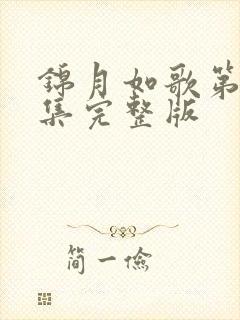 錦月如歌第
集完整版
简一儉